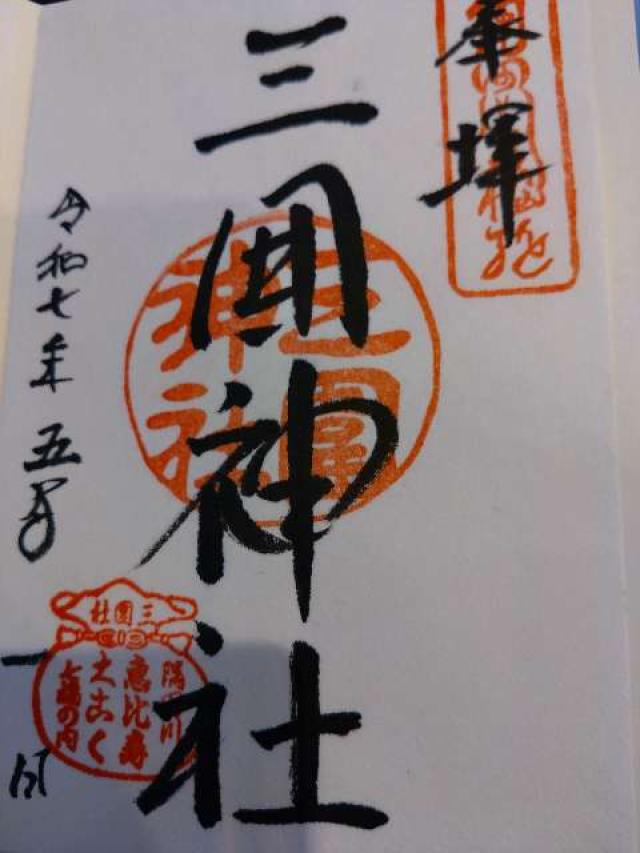 奉拝
三囲神社
三圍神社
令和七年五月一日
三圍社
隅田川
恵比寿
大こく
七福の内